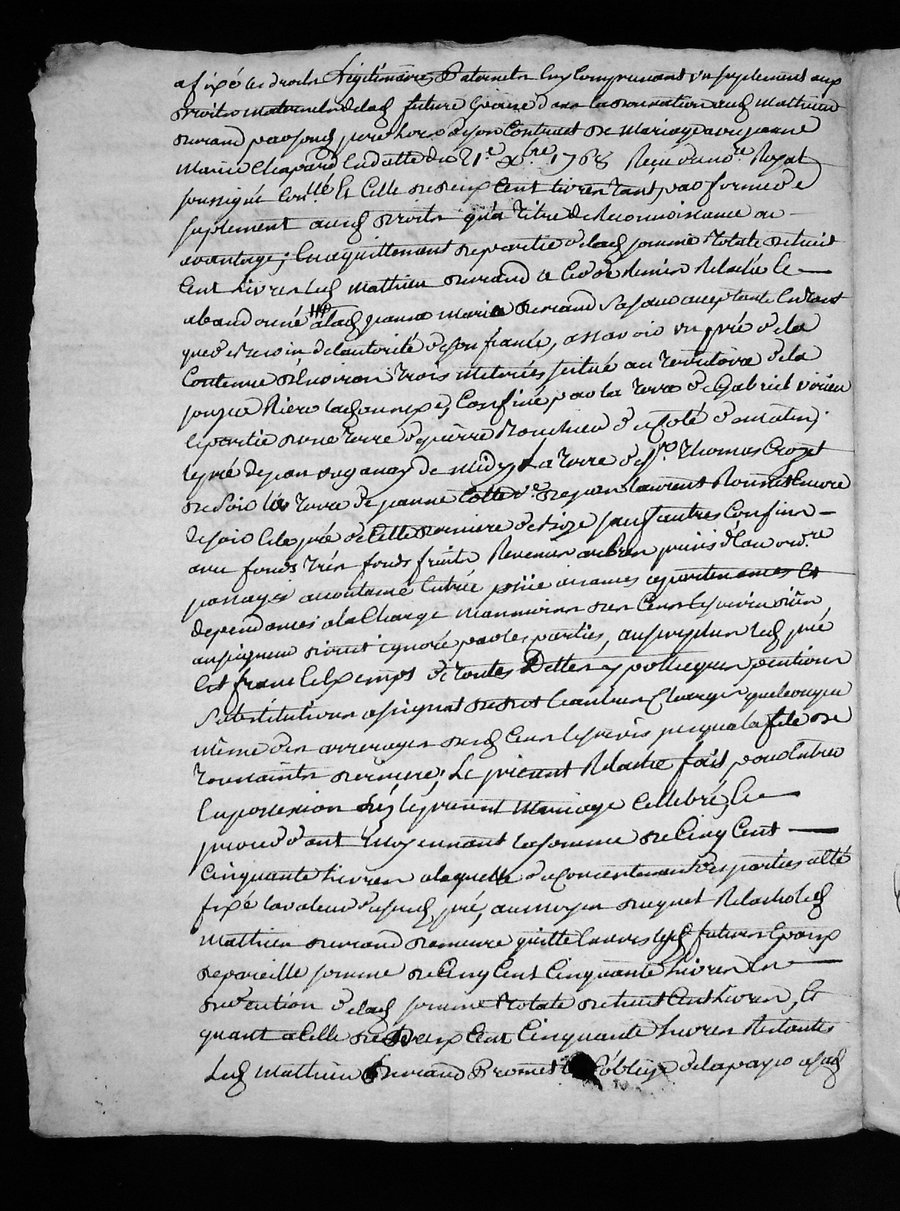 a fixé les droits Légitimaires Paternels En Comprenant un suplement aux
droits maternels de lad future Epouse dans la donnation aud Mathieu
Durand par son d pere hors de son Contrat de Mariage avec jeanne
Marie Chapard En datte du 21e Xbre 1768 Reçu dud no.re Royal
soussigné Con.llé Et Celle de deux Cent livres tant par forme de
suplement auxd droits qu'a titre de Reconnoissance ou
avantage; En aquittement de partie de lad somme totale de huit
Cent livres led Mathieu Durand a Cedé Remis Relaché Et
abandonné à lad jeanne Marie Durand Sa sœur acceptante En tant
que de besoin de l'autorité de son fiancé, assavoir un pré de la
Contenue d'Environ trois meterées situé au territoire de la
Riere Confiné par la terre de Gabriel
partie d'une terre de pierre de Coté de matin;
le pré de jean de midy, La terre de s.r Thomas Crozet
de soir La terre de jeanne Colle v.e de jean laurent Encore
de soir Et le pré de Cette derniere de bize sauf autres Confins
avec fonds tres fonds fruits Revenus arbres prises d'Eau
passages accoutumé Entrée issüe aisances apartenances Et
dependances a la Charge des Cens Et servis dûs
au seigneur direct ignoré par les parties, au surplus led pré
Est franc Et Exempt de toutes Dettes hypotheques pentions
substitutions assignat de dot Et autres Charges quelconques
même des arrerages desd Cens Et servis jusqu'a la fête de
toussaints derniere; Le present Relaché fait pour Entrer
En possession dès le present Mariage Cellebré, Et
moyennant la somme de Cinq Cent
Cinquante livres a laquelle du Consentement des parties a été
fixé la valeur dud pré, au moyen duquel Relaché led
Mathieu Durand demeure quitte Envers lesd futurs Epoux
de pareille somme de Cinq Cent Cinquante livres En
deduction de lad somme totale de huit Cent livres, Et
quant a Celle de Deux Cent Cinquante livres Restantes
Led Mathieu Durand Promet Et s'oblige de la payer a sad